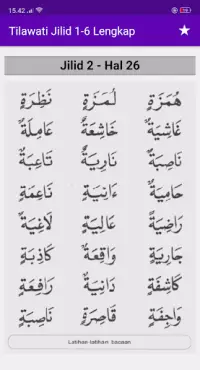 15.42
Tilawati Jilid 1-6 Lengkap
Jilid 2 - Hal 26
هُمَزَةٍ لُمَزَةٍ نَظِرَةٍ
غَاشِيَةٌ خَاشِعَةٌ عَامِلَةٌ
نَاصِبَةٌ نَارِيَةٌ تَاعِبَةٌ
حَامِيَةٌ ءَانِيَةٍ نَاعِمَةٍ
رَاضِيَةً عَالِيَةً لَاغِيَةً
جَارِيَةٍ وَاقِعَةٌ كَاذِبَةٍ
كَاشِفَةٍ دَانِيَةٌ رَافِعَةٍ
وَاجِفَةٍ قَاصِرَةٍ نَاصِبَةٍ
Latihan latihan bacaan